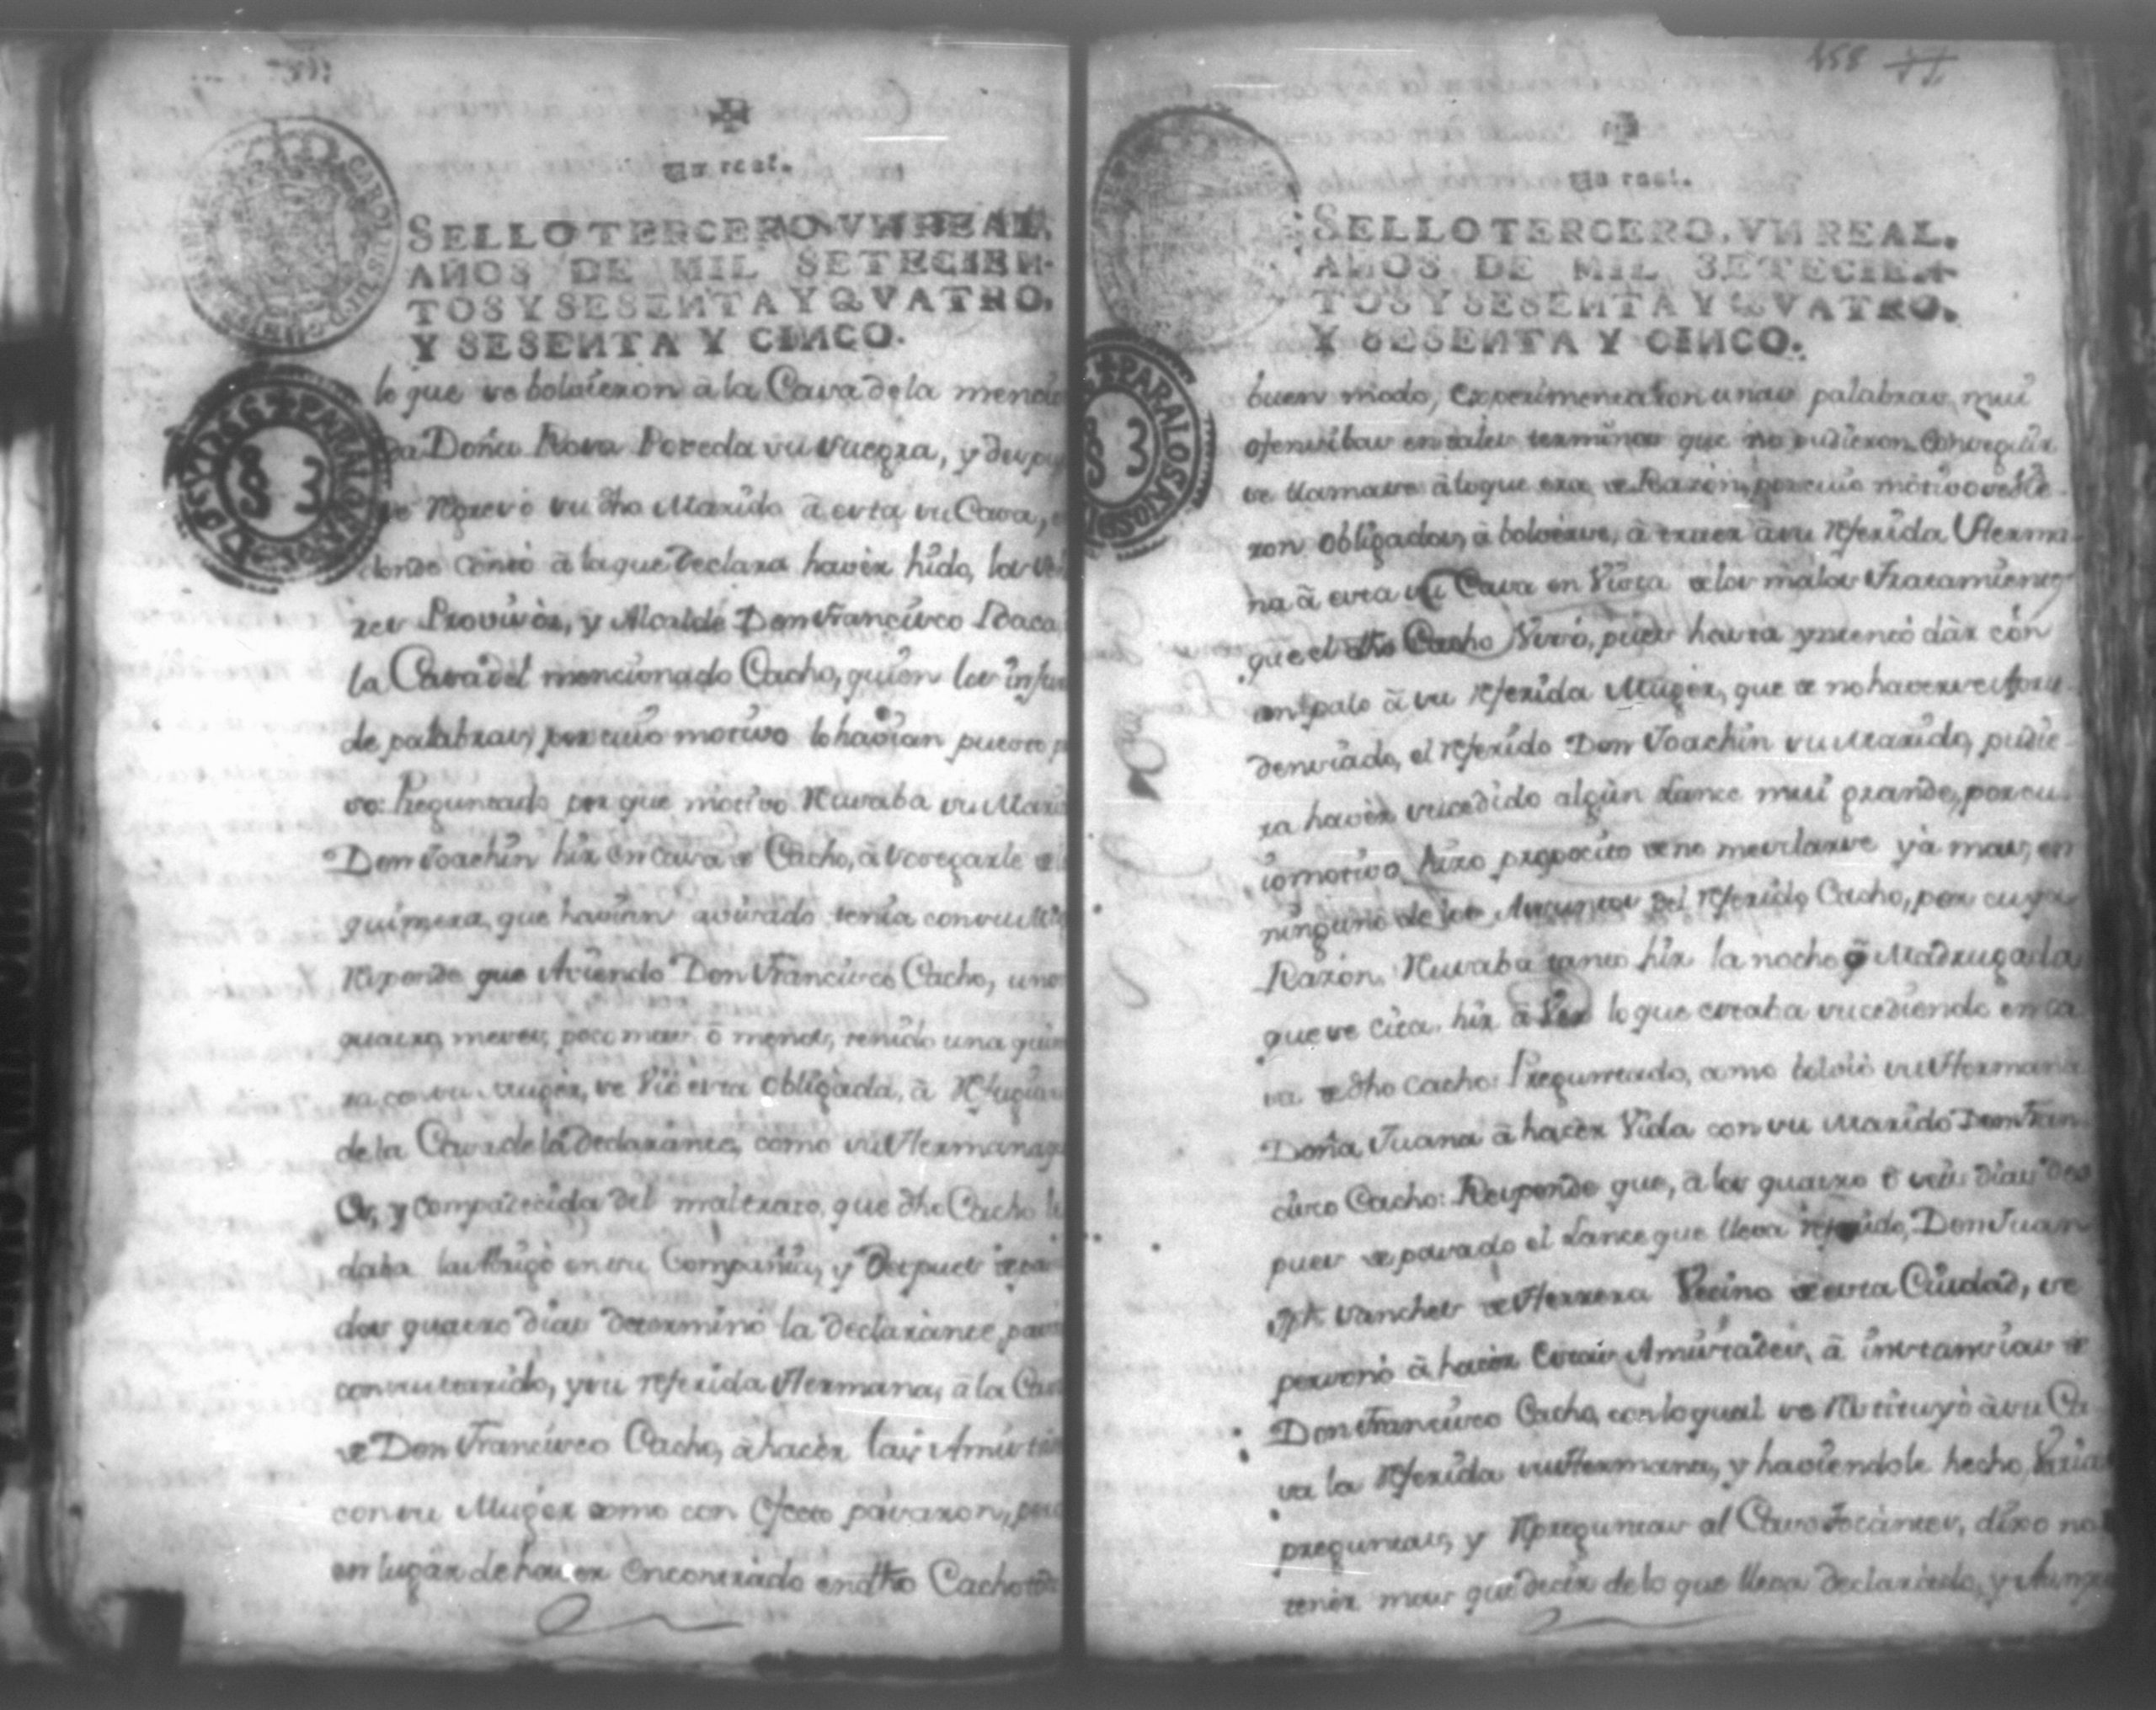 Un real.
SELLO TERCERO, VN REAL,
AÑOS DE MIL SETECIEN-
TOS Y SESENTA Y QVATRO,
Y SESENTA Y CINCO.
le que se bolvieron â la Casa de la mencio
Doña Rosa Poveda su suegra, y
se Regresò su dho Marido â esta su Casa,
donde contò â la que declara havèr hido, los
res Provisòr, y Alcalde Don Francisco Baca
la Casa del mencionado Cacho, quien los
de palabras, por cuio motivo lo havian puesto
so: Preguntado por que motivo Reusaba su Mari
Don Joachin hir en casa de Cacho, â sosegarle
quimera, que havian avisado tenia con su
Responde que Aviendo Don Francisco Cacho, unos
quatro meses, poco mas ô menos, tenido una quime
ra, con su Mugèr, se viò esta obligada, â Refugiar
de la Casa de la Declarante, como su Hermana
y compadecida del maltrato, que dho Cacho le
daba la Abrigò en su Compañia, y despues de
dos quatro dias determinò la declarante, pasar
con su marido, y su referida Hermana, â la Casa
de Don Francisco Cacho, â hacèr las Amista
con su Muger como con efecto pasaron, pero
en lugar de haver encontrado en dho Cacho
158
77
Un real.
SELLO TERCERO, VN REAL,
AÑOS DE MIL SETECIEN-
TOS Y SESENTA Y QVATRO,
Y SESENTA Y CINCO.
buen modo, experimentaron unas palabras mui
ofensibas en tales terminos que no pudieron conseguir
se llamase â lo que era de Razòn, por cuio motivo se vie-
ron obligados, â bolverse, â traer â su referida Herma-
na â esta su Casa en Vista de los malos Tratamientos
que el dho Cacho usò, pues hasta yntentò dàr con
un palo â su referida Mugèr, que de no haverse Apru-
denciado, el referido Don Joachin su Marido, pudie-
ra havèr sucedido algùn Lance mui grande, por cu-
io motivo, hizo proposito de no mesclarse yâ mas, en
ninguno de los Asuntos del referido Cacho, por cuya
Razòn Reusaba tanto hir la noche ô Madrugada
que se cita hir â Vèr lo que estaba sucediendo en ca
sa de dho Cacho: Preguntado, como bolviò su Hermana
Doña Juana â hacèr Vida con su Marido Don Fran-
cisco Cacho: Responde que, â los quatro ô seis dias des
pues de pasado el Lance que lleva referido, Don Juan
Jph. Sanches de Herrera Vecino de esta Ciudad, se
personò â hacèr estas Amistades, â instancias de
Don Francisco Cacho, con lo qual se Restituyò â su Ca
sa la referida su Hermana, y haviendole hecho varias
preguntas, y Repreguntas al Caso tocantes, dixo no
tenèr mas que decir de lo que lleva declarado, y